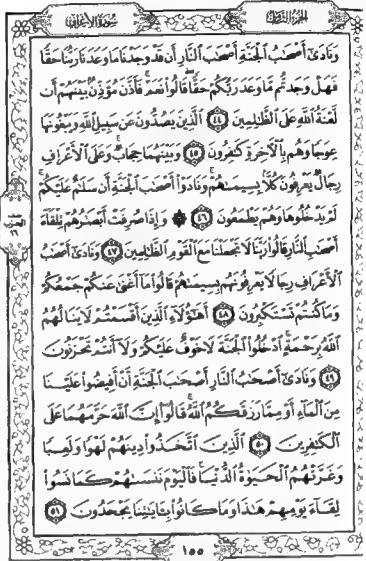 الجزء الثامن
سورة الأعراف
وَنَادَىٰٓ أَصْحَٰبُ ٱلْجَنَّةِ أَصْحَٰبَ ٱلنَّارِ أَن قَدْ وَجَدْنَا مَا وَعَدَنَا رَبُّنَا حَقًّا
فَهَلْ وَجَدتُّم مَّا وَعَدَ رَبُّكُمْ حَقًّا قَالُوا۟ نَعَمْ فَأَذَّنَ مُؤَذِّنٌۢ بَيْنَهُمْ أَن
لَّعْنَةُ ٱللَّهِ عَلَى ٱلظَّٰلِمِينَ ٤٤ ٱلَّذِينَ يَصُدُّونَ عَن سَبِيلِ ٱللَّهِ وَيَبْغُونَهَا
عِوَجًا وَهُم بِٱلْءَاخِرَةِ كَٰفِرُونَ ٤٥ وَبَيْنَهُمَا حِجَابٌ وَعَلَى ٱلْأَعْرَافِ
رِجَالٌ يَعْرِفُونَ كُلًّۢا بِسِيمَىٰهُمْ وَنَادَوْا۟ أَصْحَٰبَ ٱلْجَنَّةِ أَن سَلَٰمٌ عَلَيْكُمْ
لَمْ يَدْخُلُوهَا وَهُمْ يَطْمَعُونَ ٤٦ ۞ وَإِذَا صُرِفَتْ أَبْصَٰرُهُمْ تِلْقَآءَ
أَصْحَٰبِ ٱلنَّارِ قَالُوا۟ رَبَّنَا لَا تَجْعَلْنَا مَعَ ٱلْقَوْمِ ٱلظَّٰلِمِينَ ٤٧ وَنَادَىٰٓ أَصْحَٰبُ
ٱلْأَعْرَافِ رِجَالًا يَعْرِفُونَهُم بِسِيمَىٰهُمْ قَالُوا۟ مَآ أَغْنَىٰ عَنكُمْ جَمْعُكُمْ
وَمَا كُنتُمْ تَسْتَكْبِرُونَ ٤٨ أَهَٰٓؤُلَآءِ ٱلَّذِينَ أَقْسَمْتُمْ لَا يَنَالُهُمُ
ٱللَّهُ بِرَحْمَةٍ ٱدْخُلُوا۟ ٱلْجَنَّةَ لَا خَوْفٌ عَلَيْكُمْ وَلَآ أَنتُمْ تَحْزَنُونَ
٤٩ وَنَادَىٰٓ أَصْحَٰبُ ٱلنَّارِ أَصْحَٰبَ ٱلْجَنَّةِ أَنْ أَفِيضُوا۟ عَلَيْنَا
مِنَ ٱلْمَآءِ أَوْ مِمَّا رَزَقَكُمُ ٱللَّهُ قَالُوٓا۟ إِنَّ ٱللَّهَ حَرَّمَهُمَا عَلَى
ٱلْكَٰفِرِينَ ٥٠ ٱلَّذِينَ ٱتَّخَذُوا۟ دِينَهُمْ لَهْوًا وَلَعِبًا
وَغَرَّتْهُمُ ٱلْحَيَوٰةُ ٱلدُّنْيَا فَٱلْيَوْمَ نَنسَىٰهُمْ كَمَا نَسُوا۟
لِقَآءَ يَوْمِهِمْ هَٰذَا وَمَا كَانُوا۟ بِـَٔايَٰتِنَا يَجْحَدُونَ ٥١
١٥٥